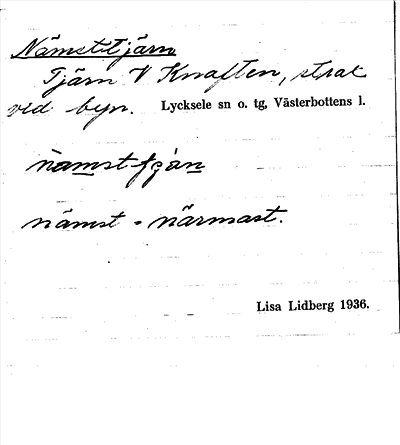 Nämsttjärn
Tjärn V Knaften, strax
vid byn. Lycksele sn o. tg, Västerbottens l.
nämst = närmast.
Lisa Lidberg 1936.